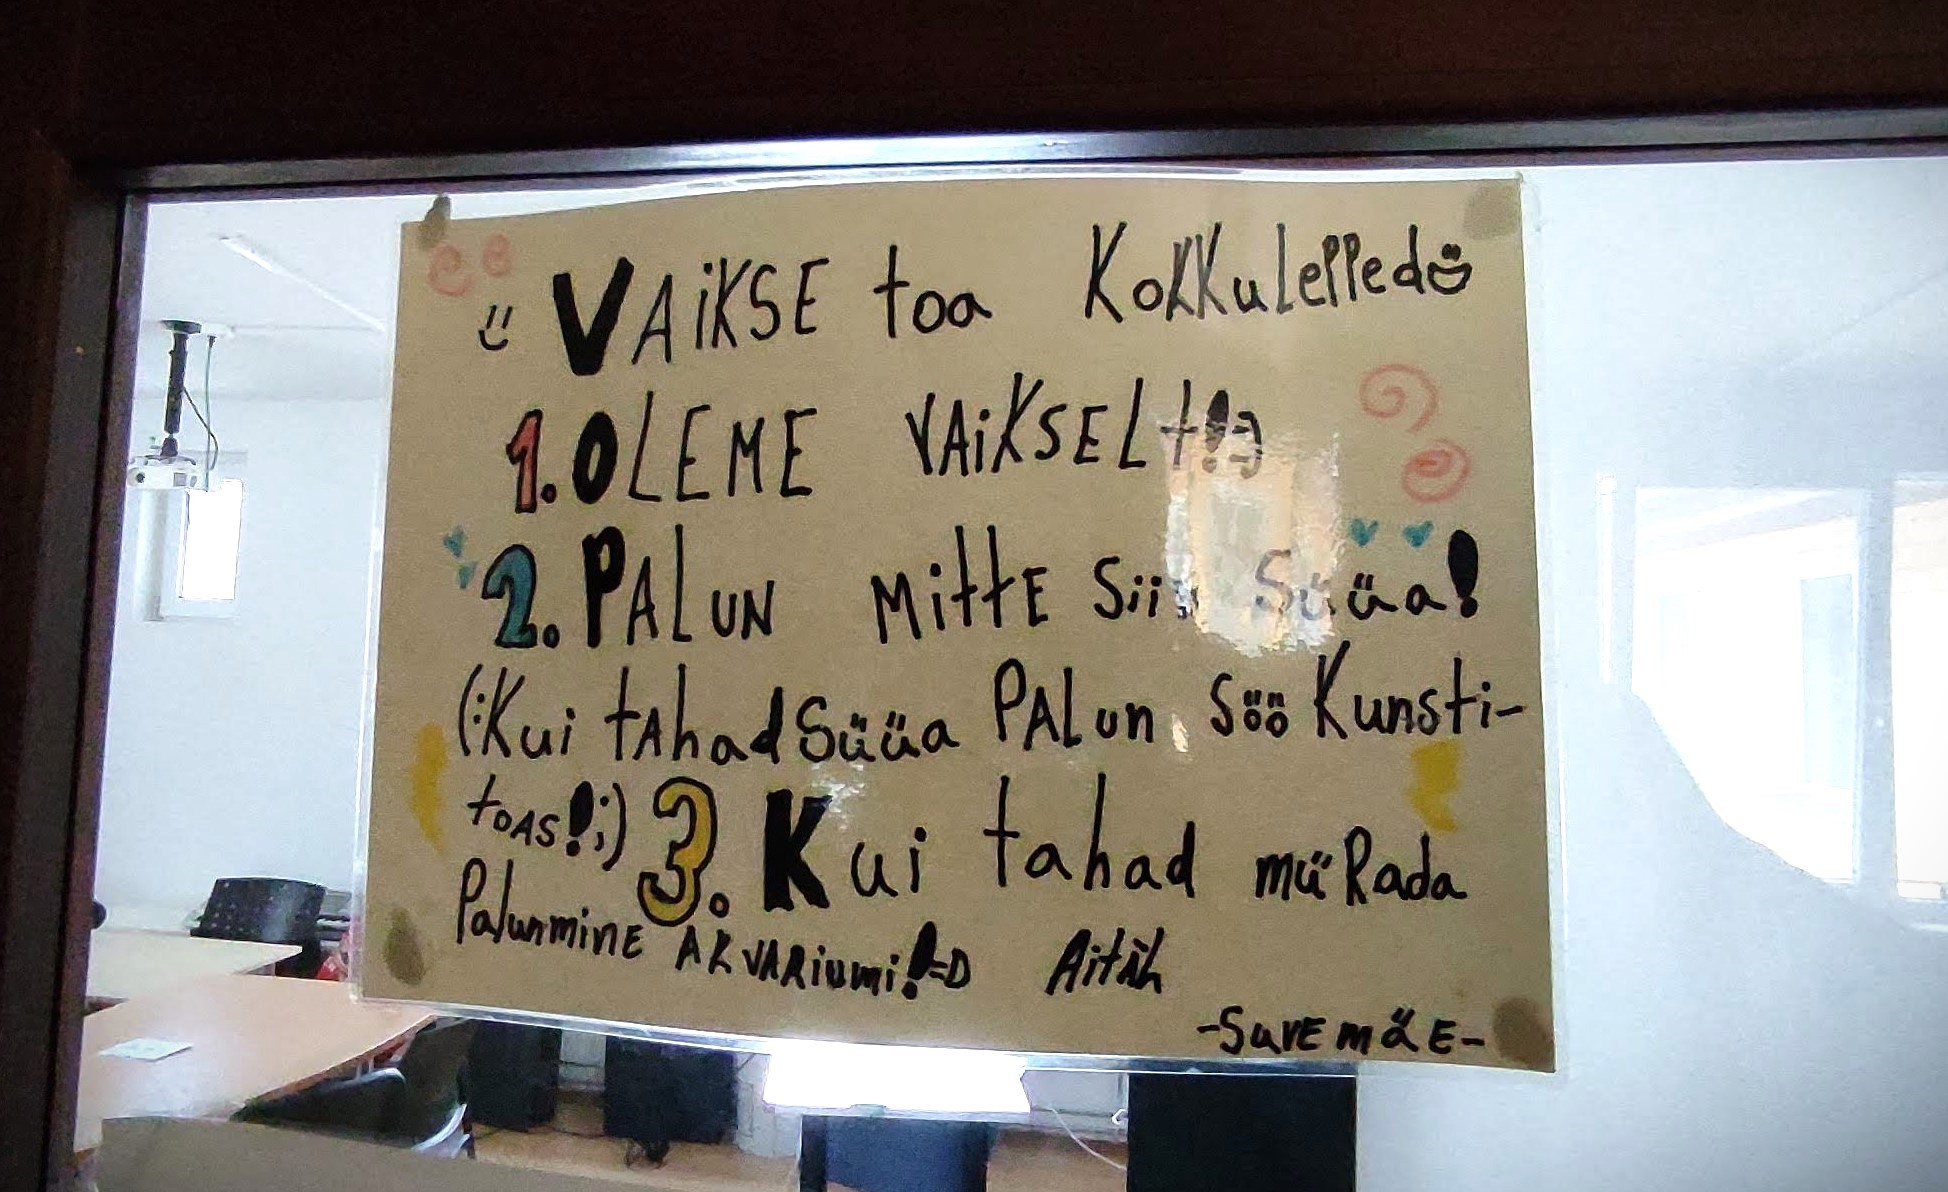 VAiKSE toa KoKKuLePPed
1. OLEME VAiKSELt!:)
2. PALUN MittE Siin Süüa!
(:Kui tAhad Süüa PALun Söö Kunsti-
toAS!;)
3. Kui tahad müRada
Palun minE AKVARiumi!=D Aitäh
-SuvEmäE-